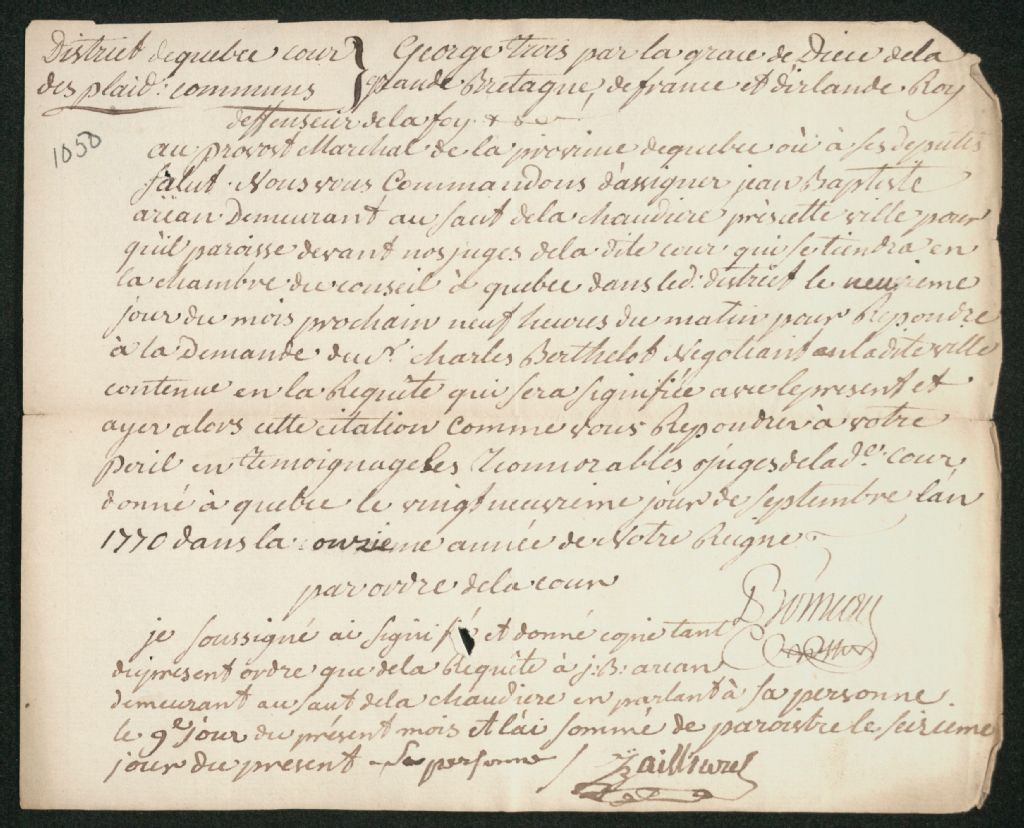 District de quebec cour
des plaid: communs
George Trois par la grace de Dieu de la
grande Bretagne, de france et d'irlande Roy
deffenseur de la foy &
1050
au provost Marchal de la province de quebec ou à ses deputés
Salut. Nous vous Commandons d'assigner jean Baptiste
arïan Demeurant au saut de la chaudiere près cette ville pour
qu'il paroisse devant nos juges de la dite cour qui se tiendra en
la chambre du conseil à quebec dans led: district le neuvieme
jour du mois prochain neuf heures du matin pour Repondre
à la Demande du Sr. Charles Berthelot Negotiant en la dite ville
contenue en la Requête qui sera signifiée avec le present et
ayez alors cette citation comme vous Repondrez à votre
Peril en Temoignage les honnorables juges de lad.e cour,
donné à quebec le vingt neuvieme jour de septembre l'an
1770 dans la onzieme année de Notre Reigne.
par ordre de la cour
je soussigné ai signifié et donné copie tant
du present ordre que de la Requête à j. B. arian
demeurant au saut de la chaudiere en parlant à sa personne
le 9e jour du présent mois et l'ai sommé de paroistre le seizieme
jour du present
personne